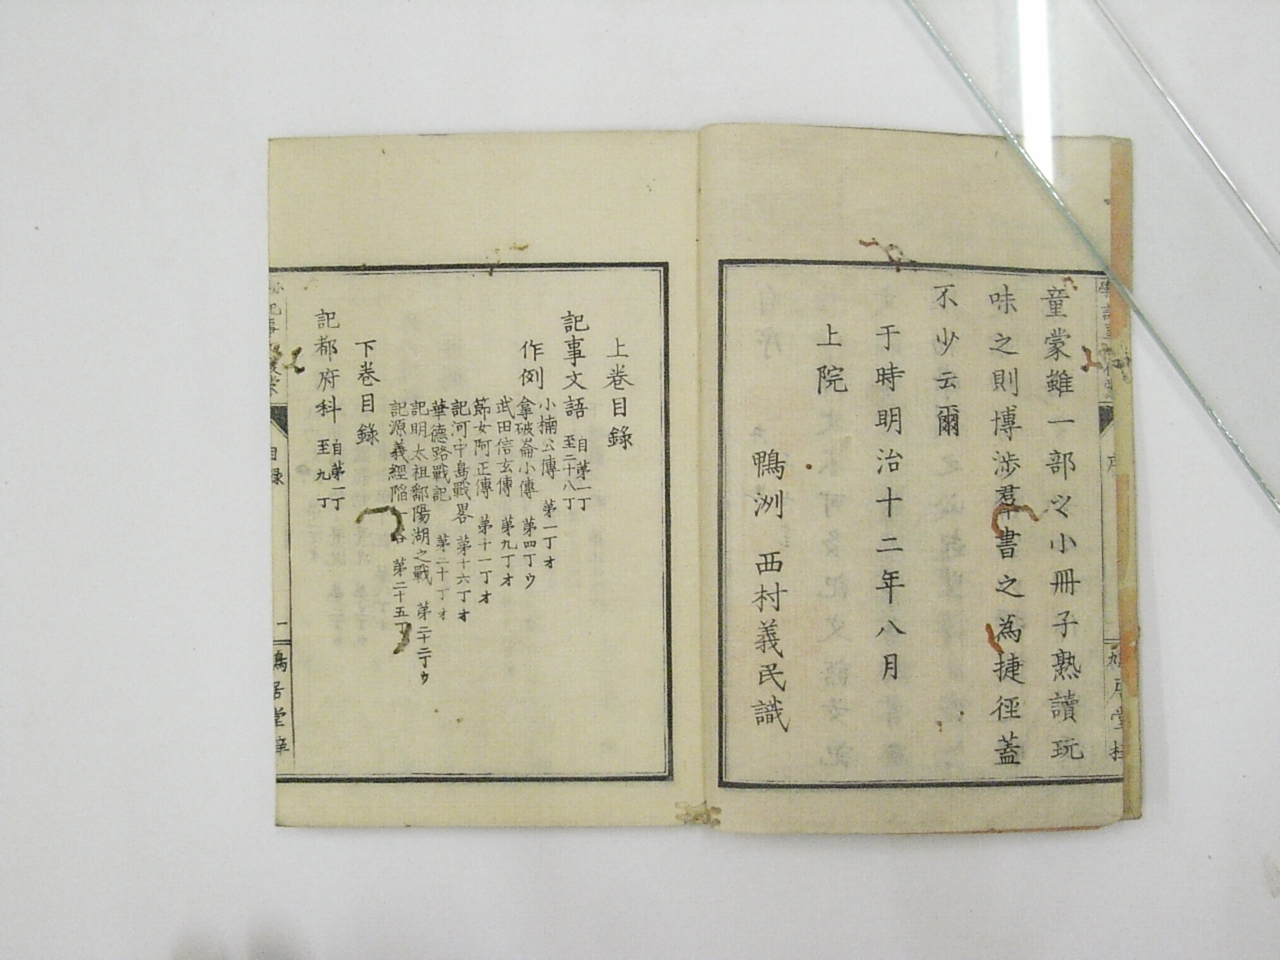 童蒙雖一部之小冊子熟讀玩
味之則博涉羣書之為捷徑蓋
不少云爾
于時明治十二年八月
上院
鴨洲 西村義民識
序
上卷目錄
記事文語 自第一丁至二十八丁
作例
小楠公傳 第一丁オ
拿破崙小傳 第四丁ウ
武田信玄傳 第九丁オ
節女阿正傳 第十一丁オ
記河中島戰畧 第十六丁オ
華德路戰記 第二十丁オ
記明太祖鄱陽湖之戰 第二十二丁ウ
記源義經陷一谷 第二十五丁
下卷目錄
記都府科 自第一丁至九丁
目錄
一
鳩居堂梓